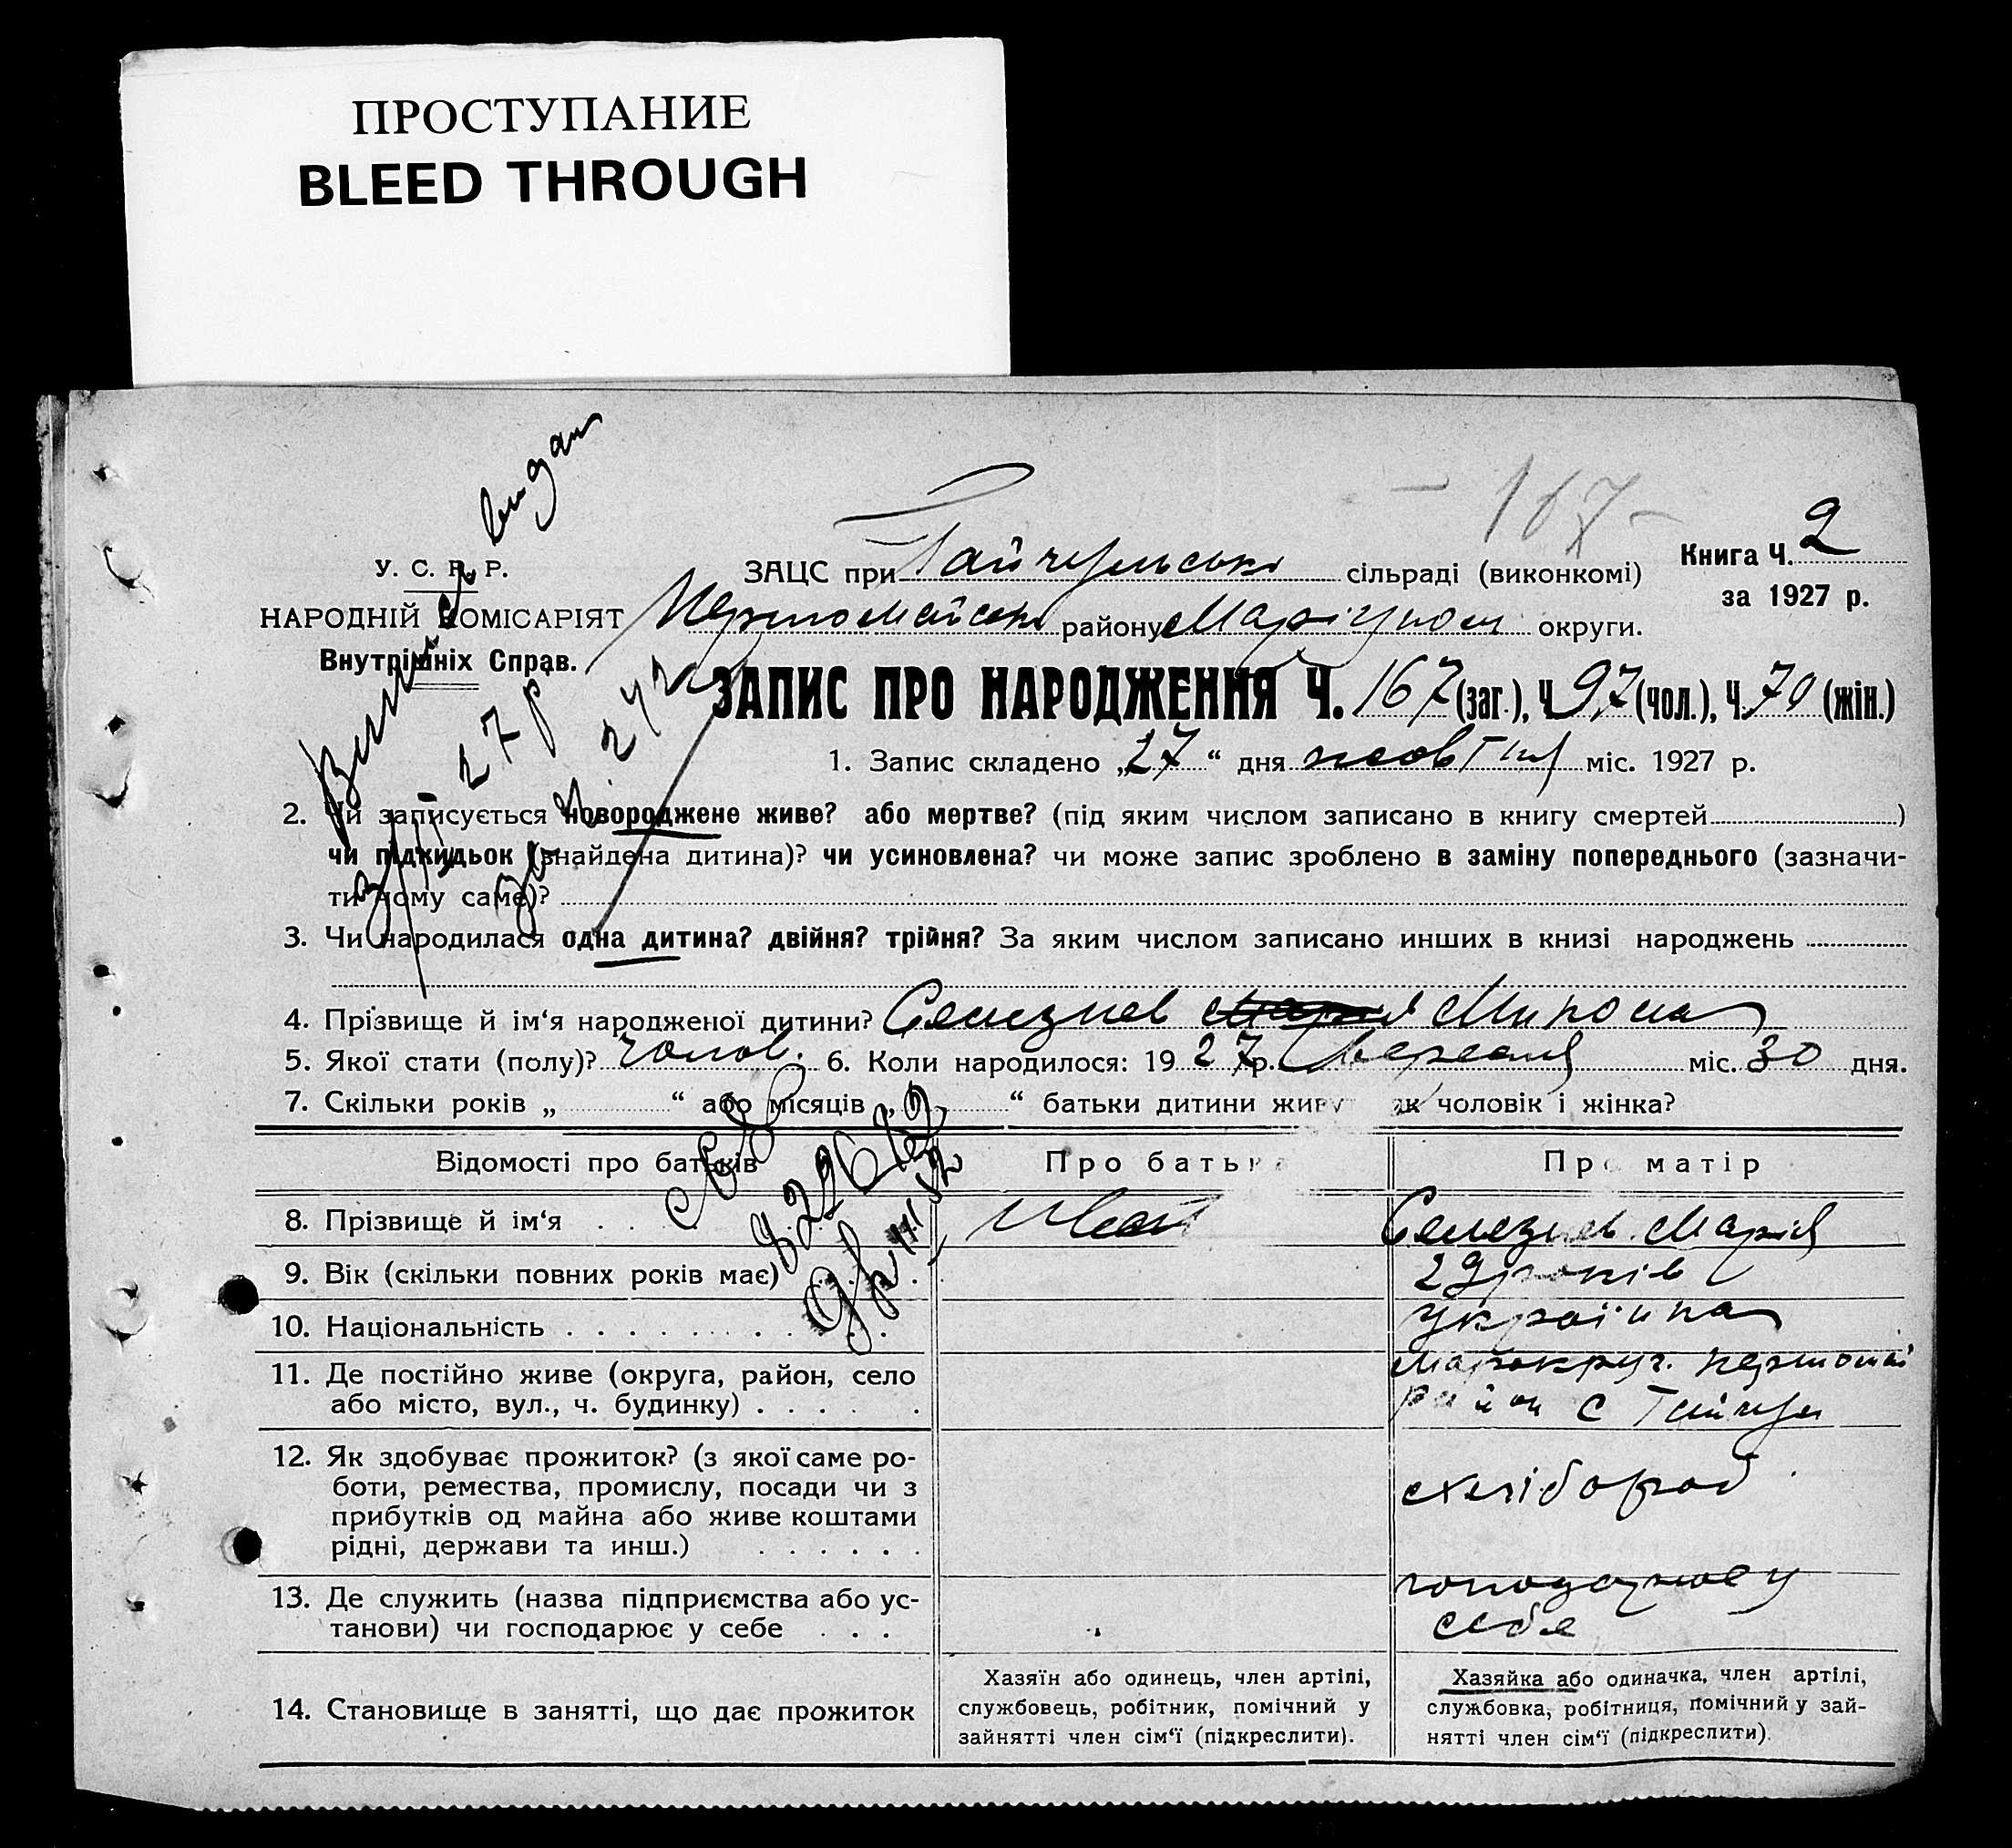 ПРОСТУПАНИЕ
BLEED THROUGH
167
Книга Ч. 2
за 1927 р.
У. С. Р. Р.
НАРОДНІЙ КОМІСАРІЯТ
Внутрішніх Справ.
ЗАЦС при Гайчульські сільраді (виконкомі)
Першомайськ району Маріупол округи.
ЗАПИС ПРО НАРОДЖЕННЯ Ч. 167 (заг.), Ч. 97 (чол.), Ч. 70 (жін.)
27 р
1. Запис складено „27“ дня жовтня міс. 1927 р.
2. Чи записується новороджене живе? або мертве? (під яким числом записано в книгу смертей )
чи підкидьок (знайдена дитина)? чи усиновлена? чи може запис зроблено в заміну попереднього (зазначи-
ти чому саме)?
3. Чи народилася одна дитина? двійня? трійня? За яким числом записано инших в книзі народжень
4. Прізвище й ім‘я народженої дитини? Селезнев Микола
5. Якої стати (полу)? чолов. 6. Коли народилося: 1927 р. Вересня міс. 30 дня.
7. Скільки років „ “ або місяців „ “ батьки дитини живуть як чоловік і жінка?
Відомості про батьків
Про батька
Про матір
8. Прізвище й ім‘я . . .
Иван
Селезнев Марія
9. Вік (скільки повних років має)
29 років
10. Національність . . . . . . . .
українка
11. Де постійно живе (округа, район, село
або місто, вул., ч. будинку) . . . . .
Марокруг. Першомай
район с Гайчул
12. Як здобуває прожиток? (з якої саме ро-
боти, ремества, промислу, посади чи з
прибутків од майна або живе коштами
рідні, держави та инш.) . . . . . .
хлібороб
13. Де служить (назва підприємства або ус-
танови) чи господарює у себе . . .
господарює у
себе
14. Становище в занятті, що дає прожиток
Хазяїн або одинець, член артілі,
службовець, робітник, помічний у
зайнятті член сім‘ї (підкреслити).
Хазяйка або одиначка, член артілі,
службовка, робітниця, помічний у зай-
нятті член сім‘ї (підкреслити).